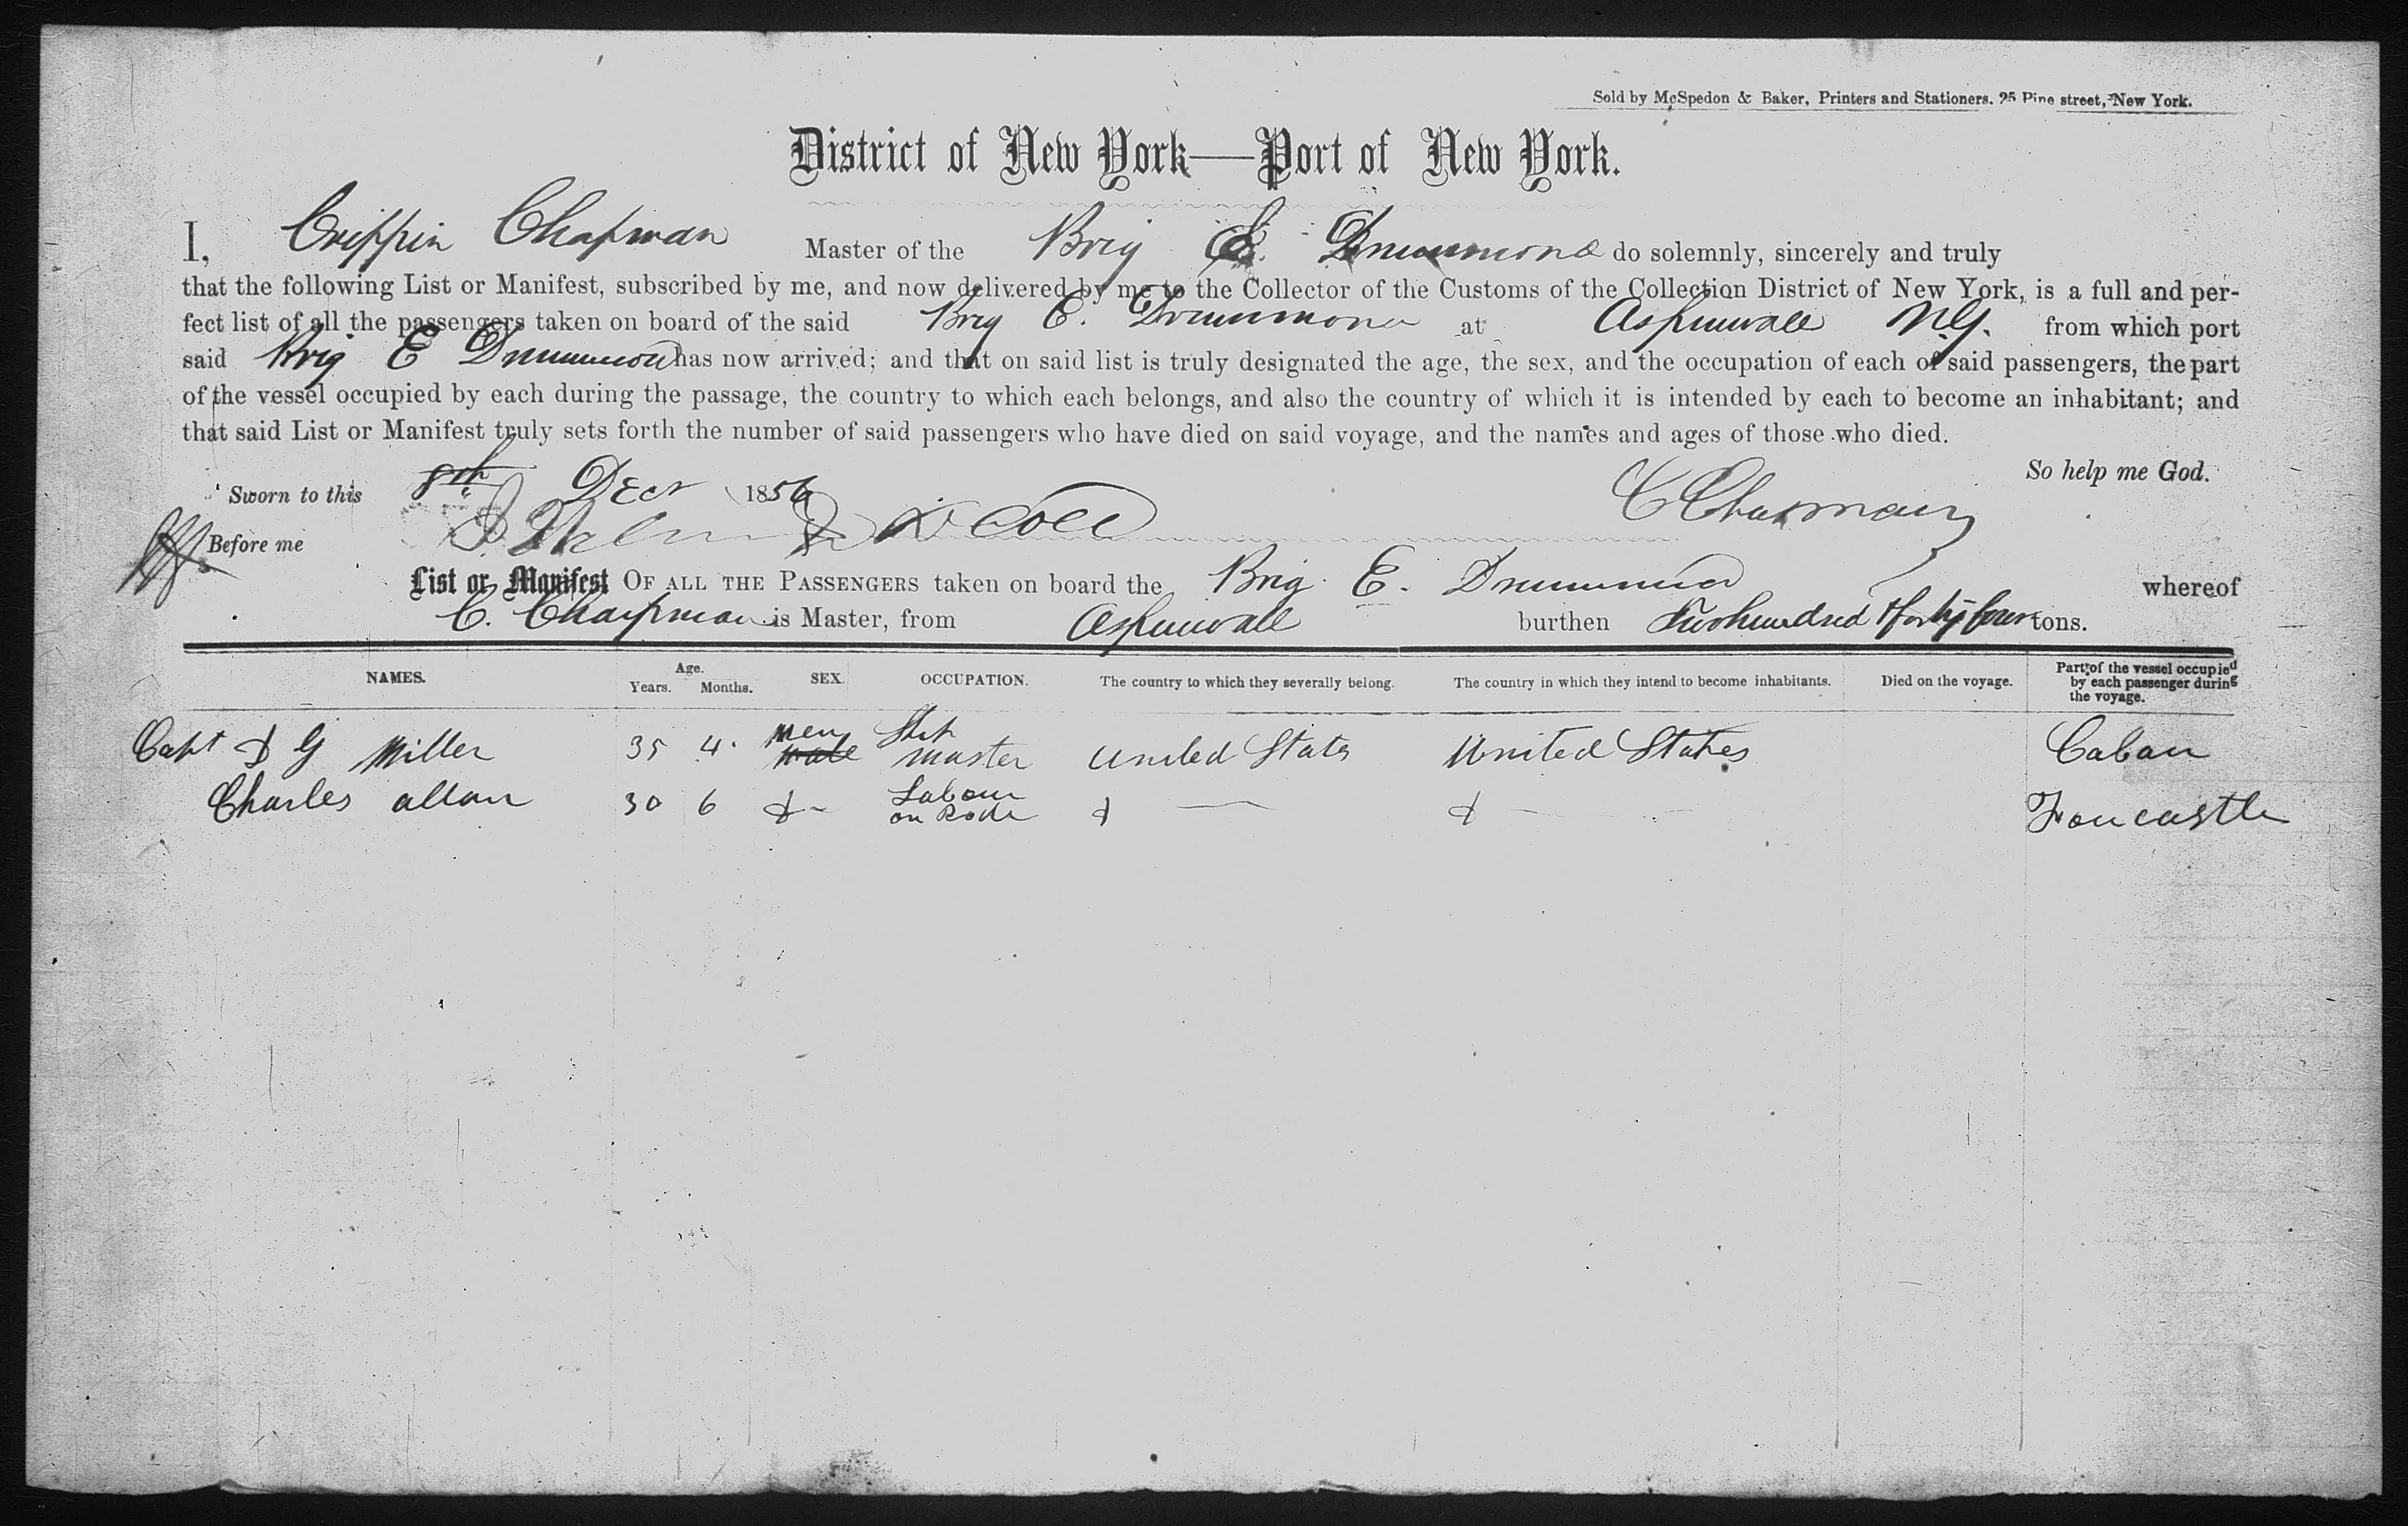 Sold by McSpedon & Baker, Printers and Stationers. 25 Pine street, New York.
District of New York—Port of New York.
I, Crippin Chapman Master of the Brig E. Drummond do solemnly, sincerely and truly
that the following List or Manifest, subscribed by me, and now delivered by me to the Collector of the Customs of the Collection District of New York, is a full and per-
fect list of all the passengers taken on board of the said Brig E. Drummond at Aspinwall N.G. from which port
said Brig E Drummond has now arrived; and that on said list is truly designated the age, the sex, and the occupation of each of said passengers, the part
of the vessel occupied by each during the passage, the country to which each belongs, and also the country of which it is intended by each to become an inhabitant; and
that said List or Manifest truly sets forth the number of said passengers who have died on said voyage, and the names and ages of those who died.
So help me God.
Sworn to this 8th Decr 1856 C Chapman
Before me
List or Manifest OF ALL THE PASSENGERS taken on board the Brig E. Drummond whereof
C. Chapman is Master, from Aspinwall burthen Two hundred & forty four tons.
NAMES. Age. Years. Months. SEX. OCCUPATION. The country to which they severally belong. The country in which they intend to become inhabitants. Died on the voyage. Part of the vessel occupied by each passenger during the voyage.
Capt D G Miller 35 4 men male Ship master United Stats United States Caban
Charles allan 30 6 d— Labour on Rode d — d — Foucastle